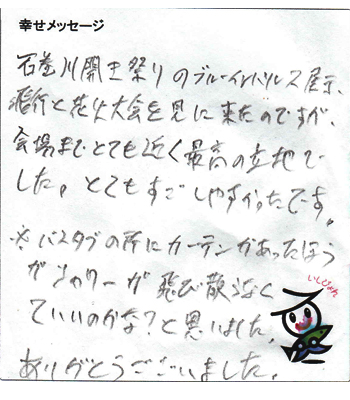 幸せメッセージ
石巻川開き祭りのブルーインパルス展示、
飛行と花火大会を見に来たのですが、
会場までとても近く最高の立地で
した。とてもすごしやすかったです。
※バスタブの所にカーテンがあったほう
がシャワーが飛び散らなく
ていいのかな?と思いました。
ありがとうございました。
いしぴょん